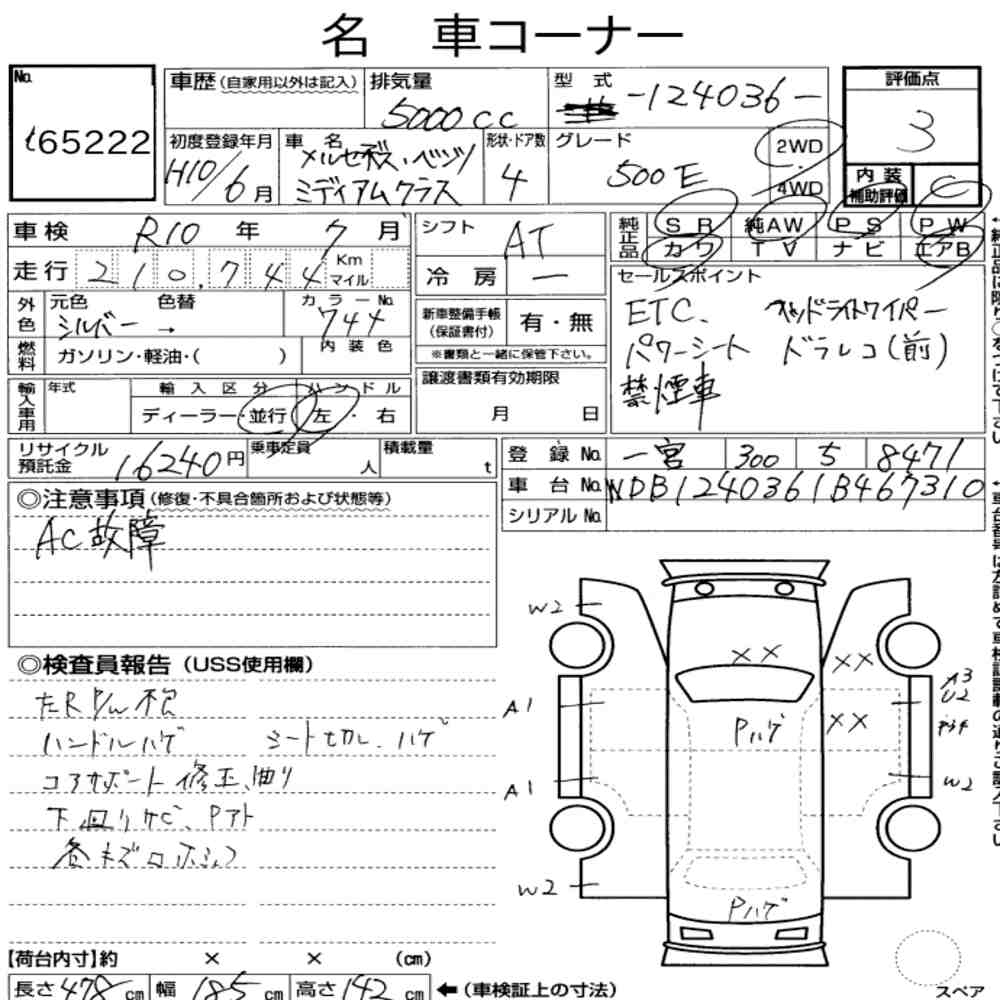 名 車コーナー
No. t65222
車歴(自家用以外は記入) 排気量 5000cc 型式 -124036- 評価点 3
初度登録年月 H10/6月 車名 メルセデス・ベンツ ミディアムクラス 形状・ドア数 4 グレード 500E 2WD・4WD 内装補助評価 C
車検 R10年 7月 シフト AT 純正品 SR 純AW PS PW
カワ TV ナビ エアB
走行 210,744 Km マイル 冷房 ー
セールスポイント
ETC、 ヘッドライトワイパー
パワーシート ドラレコ(前)
禁煙車
外色 元色 シルバー → 色替 カラーNo. 744
新車整備手帳(保証書付) 有・無
※書類と一緒に保管下さい。
燃料 ガソリン・軽油・( ) 内装色
譲渡書類有効期限
月 日
輸入車用 年式 輸入区分 ハンドル
ディーラー・並行 左・右
リサイクル預託金 16240円 乗車定員 人 積載量 t
登録No. 一宮 300 ら 8471
車台No. WDB1240361B467310
シリアルNo.
◎注意事項(修復・不具合箇所および状態等)
AC故障
◎検査員報告(USS使用欄)
ハンドルハゲ シート切れ、ハゲ
コアサポート修正、曲り
下回りサビ、Pアト
各キズロホシ
W2
XX
XX
A3
U2
A1
Pハゲ
XX
A1
W2
W2
Pハゲ
【荷台内寸】約 × × (cm)
長さ 478cm 幅 185cm 高さ 142cm ←(車検証上の寸法)
スペア